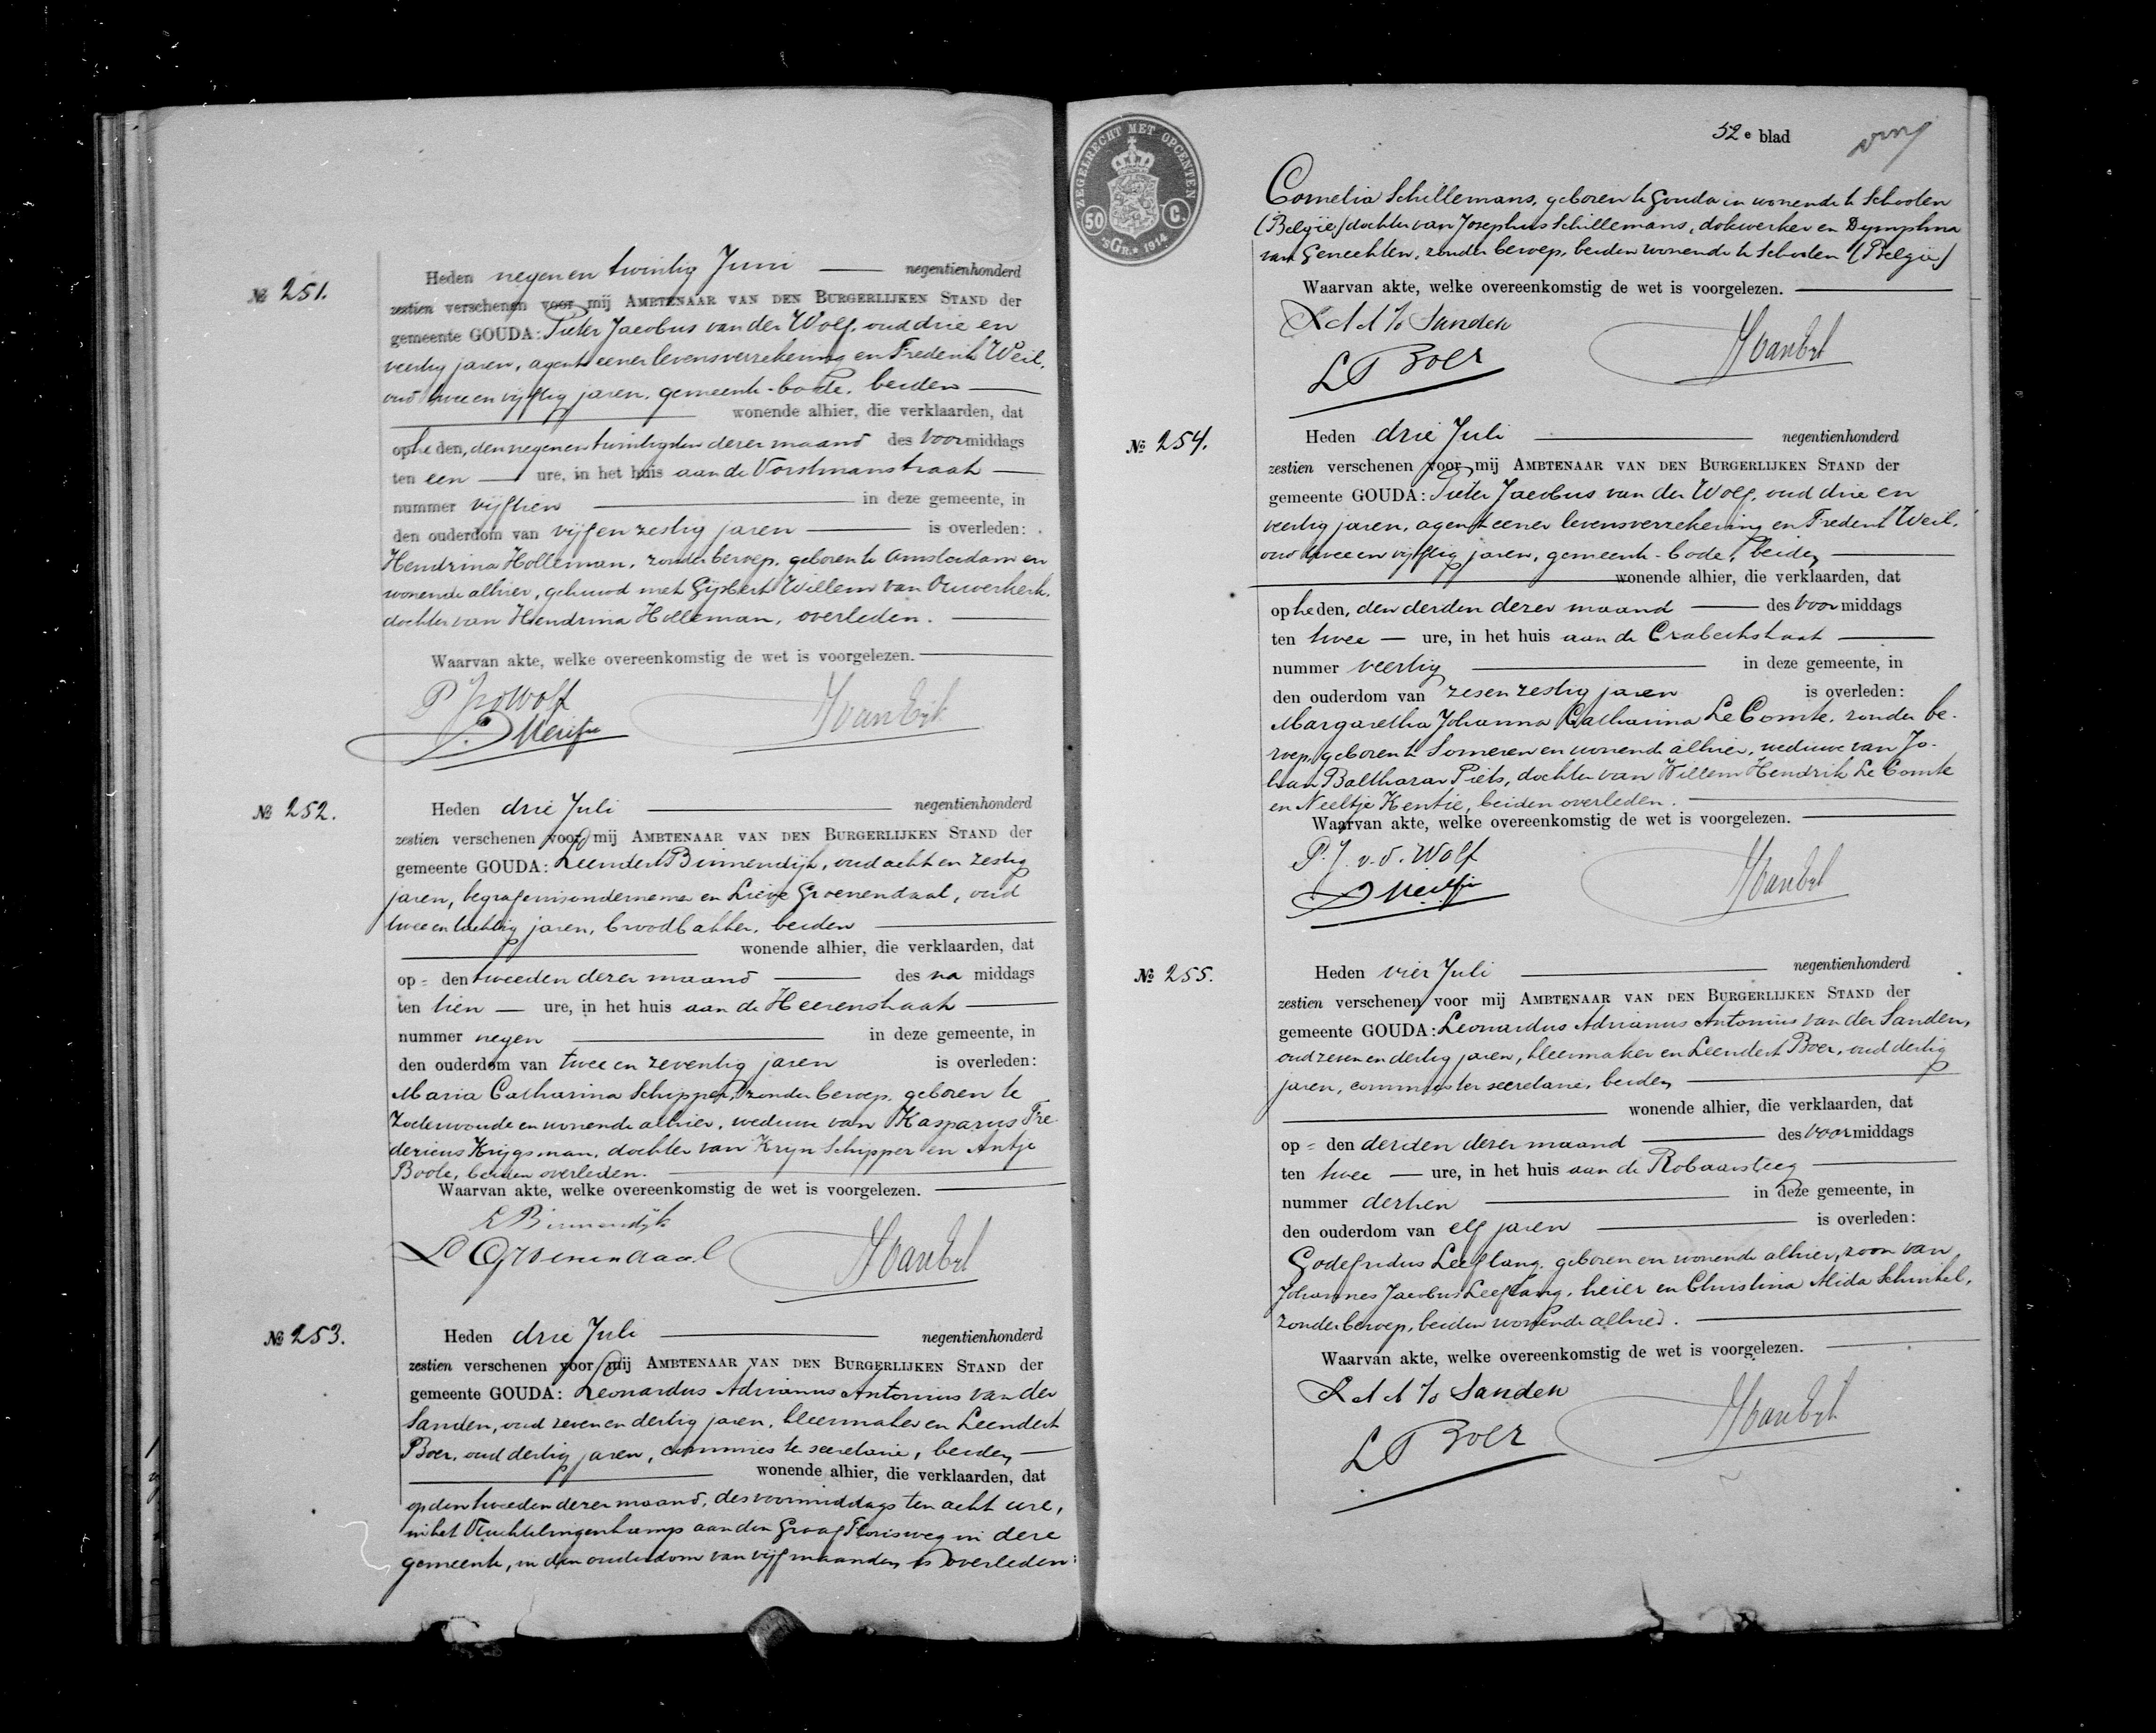 № 251.
Heden negen en twintig Juni negentienhonderd
zestien verschenen voor mij AMBTENAAR VAN DEN BURGERLIJKEN STAND der
gemeente GOUDA: Pieter Jacobus van der Wolf, oud drie en
veertig jaren, agent eener levensverzekering en Frederik Weil,
oud twee en vijftig jaren, gemeente-bode, beiden
wonende alhier, die verklaarden, dat
op heden, den negenentwintigsten dezer maand des voormiddags
ten een ure, in het huis aan de Vorstmanstraat
nummer vijftien in deze gemeente, in
den ouderdom van vijf en zestig jaren is overleden:
Hendrina Holleman, zonder beroep, geboren te Amsterdam en
wonende alhier, gehuwd met Gijsbert Willem van Ouwerkerk,
dochter van Hendrina Holleman, overleden.
Waarvan akte, welke overeenkomstig de wet is voorgelezen.
№ 252.
Heden drie Juli negentienhonderd
zestien verschenen voor mij AMBTENAAR VAN DEN BURGERLIJKEN STAND der
gemeente GOUDA: Leendert Binnendijk, oud acht en zestig
jaren, begrafenisondernemer en Lieve Groenendaal, oud
twee en tachtig jaren, broodbakker, beiden
wonende alhier, die verklaarden, dat
op = den tweeden dezer maand des na middags
ten tien ure, in het huis aan de Heerenstraat
nummer negen in deze gemeente, in
den ouderdom van twee en zeventig jaren is overleden:
Maria Catharina Schipper, zonder beroep, geboren te
Zoeterwoude en wonende alhier, weduwe van Kasparus Fre-
dericus Krijgsman, dochter van Krijn Schipper en Antje
Boole, beiden overleden.
Waarvan akte, welke overeenkomstig de wet is voorgelezen.
L Binnendijk
L Groenendaal
№ 253.
Heden drie Juli negentienhonderd
zestien verschenen voor mij AMBTENAAR VAN DEN BURGERLIJKEN STAND der
gemeente GOUDA: Leonardus Adrianus Antonius van der
Sanden, oud zeven en dertig jaren, kleermaker en Leendert
Boer, oud dertig jaren, commies ter secretarie, beiden
wonende alhier, die verklaarden, dat
op den tweeden dezer maand, des voormiddags ten acht ure,
in het Vluchtelingenkamp aan den Graaf Florisweg in deze
gemeente, in den ouderdom van vijf maanden is overleden:
ZEGELRECHT MET OPCENTEN
50 C.
'SGR. 1914
52e blad
Cornelia Schillemans, geboren te Gouda en wonende te Schooten
(België) dochter van Josephus Schillemans, dokwerker en Dymphna
van Genechten, zonder beroep, beiden wonende te Schooten (België)
Waarvan akte, welke overeenkomstig de wet is voorgelezen.
L A A vd Sanden
L Boer
№ 254.
Heden drie Juli negentienhonderd
zestien verschenen voor mij AMBTENAAR VAN DEN BURGERLIJKEN STAND der
gemeente GOUDA: Pieter Jacobus van der Wolf, oud drie en
veertig jaren, agent eener levensverzekering en Frederik Weil,
oud twee en vijftig jaren, gemeente-bode, beiden
wonende alhier, die verklaarden, dat
op heden, den derden dezer maand des voor middags
ten twee ure, in het huis aan de Crabethstraat
nummer veertig in deze gemeente, in
den ouderdom van zes en zestig jaren is overleden:
Margaretha Johanna Catharina Le Comte, zonder be-
roep, geboren te Someren en wonende alhier, weduwe van Jo-
han Balthazar Piets, dochter van Willem Hendrik Le Comte
en Neeltje Kentie, beiden overleden.
Waarvan akte, welke overeenkomstig de wet is voorgelezen.
P. J. v. d. Wolf
№ 255.
Heden vier Juli negentienhonderd
zestien verschenen voor mij AMBTENAAR VAN DEN BURGERLIJKEN STAND der
gemeente GOUDA: Leonardus Adrianus Antonius van der Sanden,
oud zeven en dertig jaren, kleermaker en Leendert Boer, oud dertig
jaren, commies ter secretarie, beiden
wonende alhier, die verklaarden, dat
op = den derden dezer maand des voormiddags
ten twee ure, in het huis aan de Robaarsteeg
nummer dertien in deze gemeente, in
den ouderdom van elf jaren is overleden:
Godefridus Leeflang, geboren en wonende alhier, zoon van
Johannes Jacobus Leeflang, heier en Christina Alida Schinkel,
zonder beroep, beiden wonende alhier.
Waarvan akte, welke overeenkomstig de wet is voorgelezen.
L A A vd Sanden
L Boer